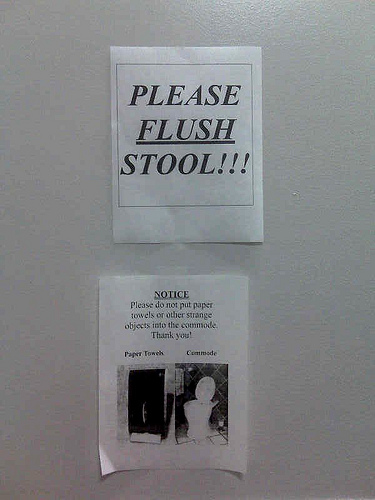 PLEASE
FLUSH
STOOL!!!
NOTICE
Please do not put paper
towels or other strange
objects into the commode.
Thank you!
Paper Towels Commode